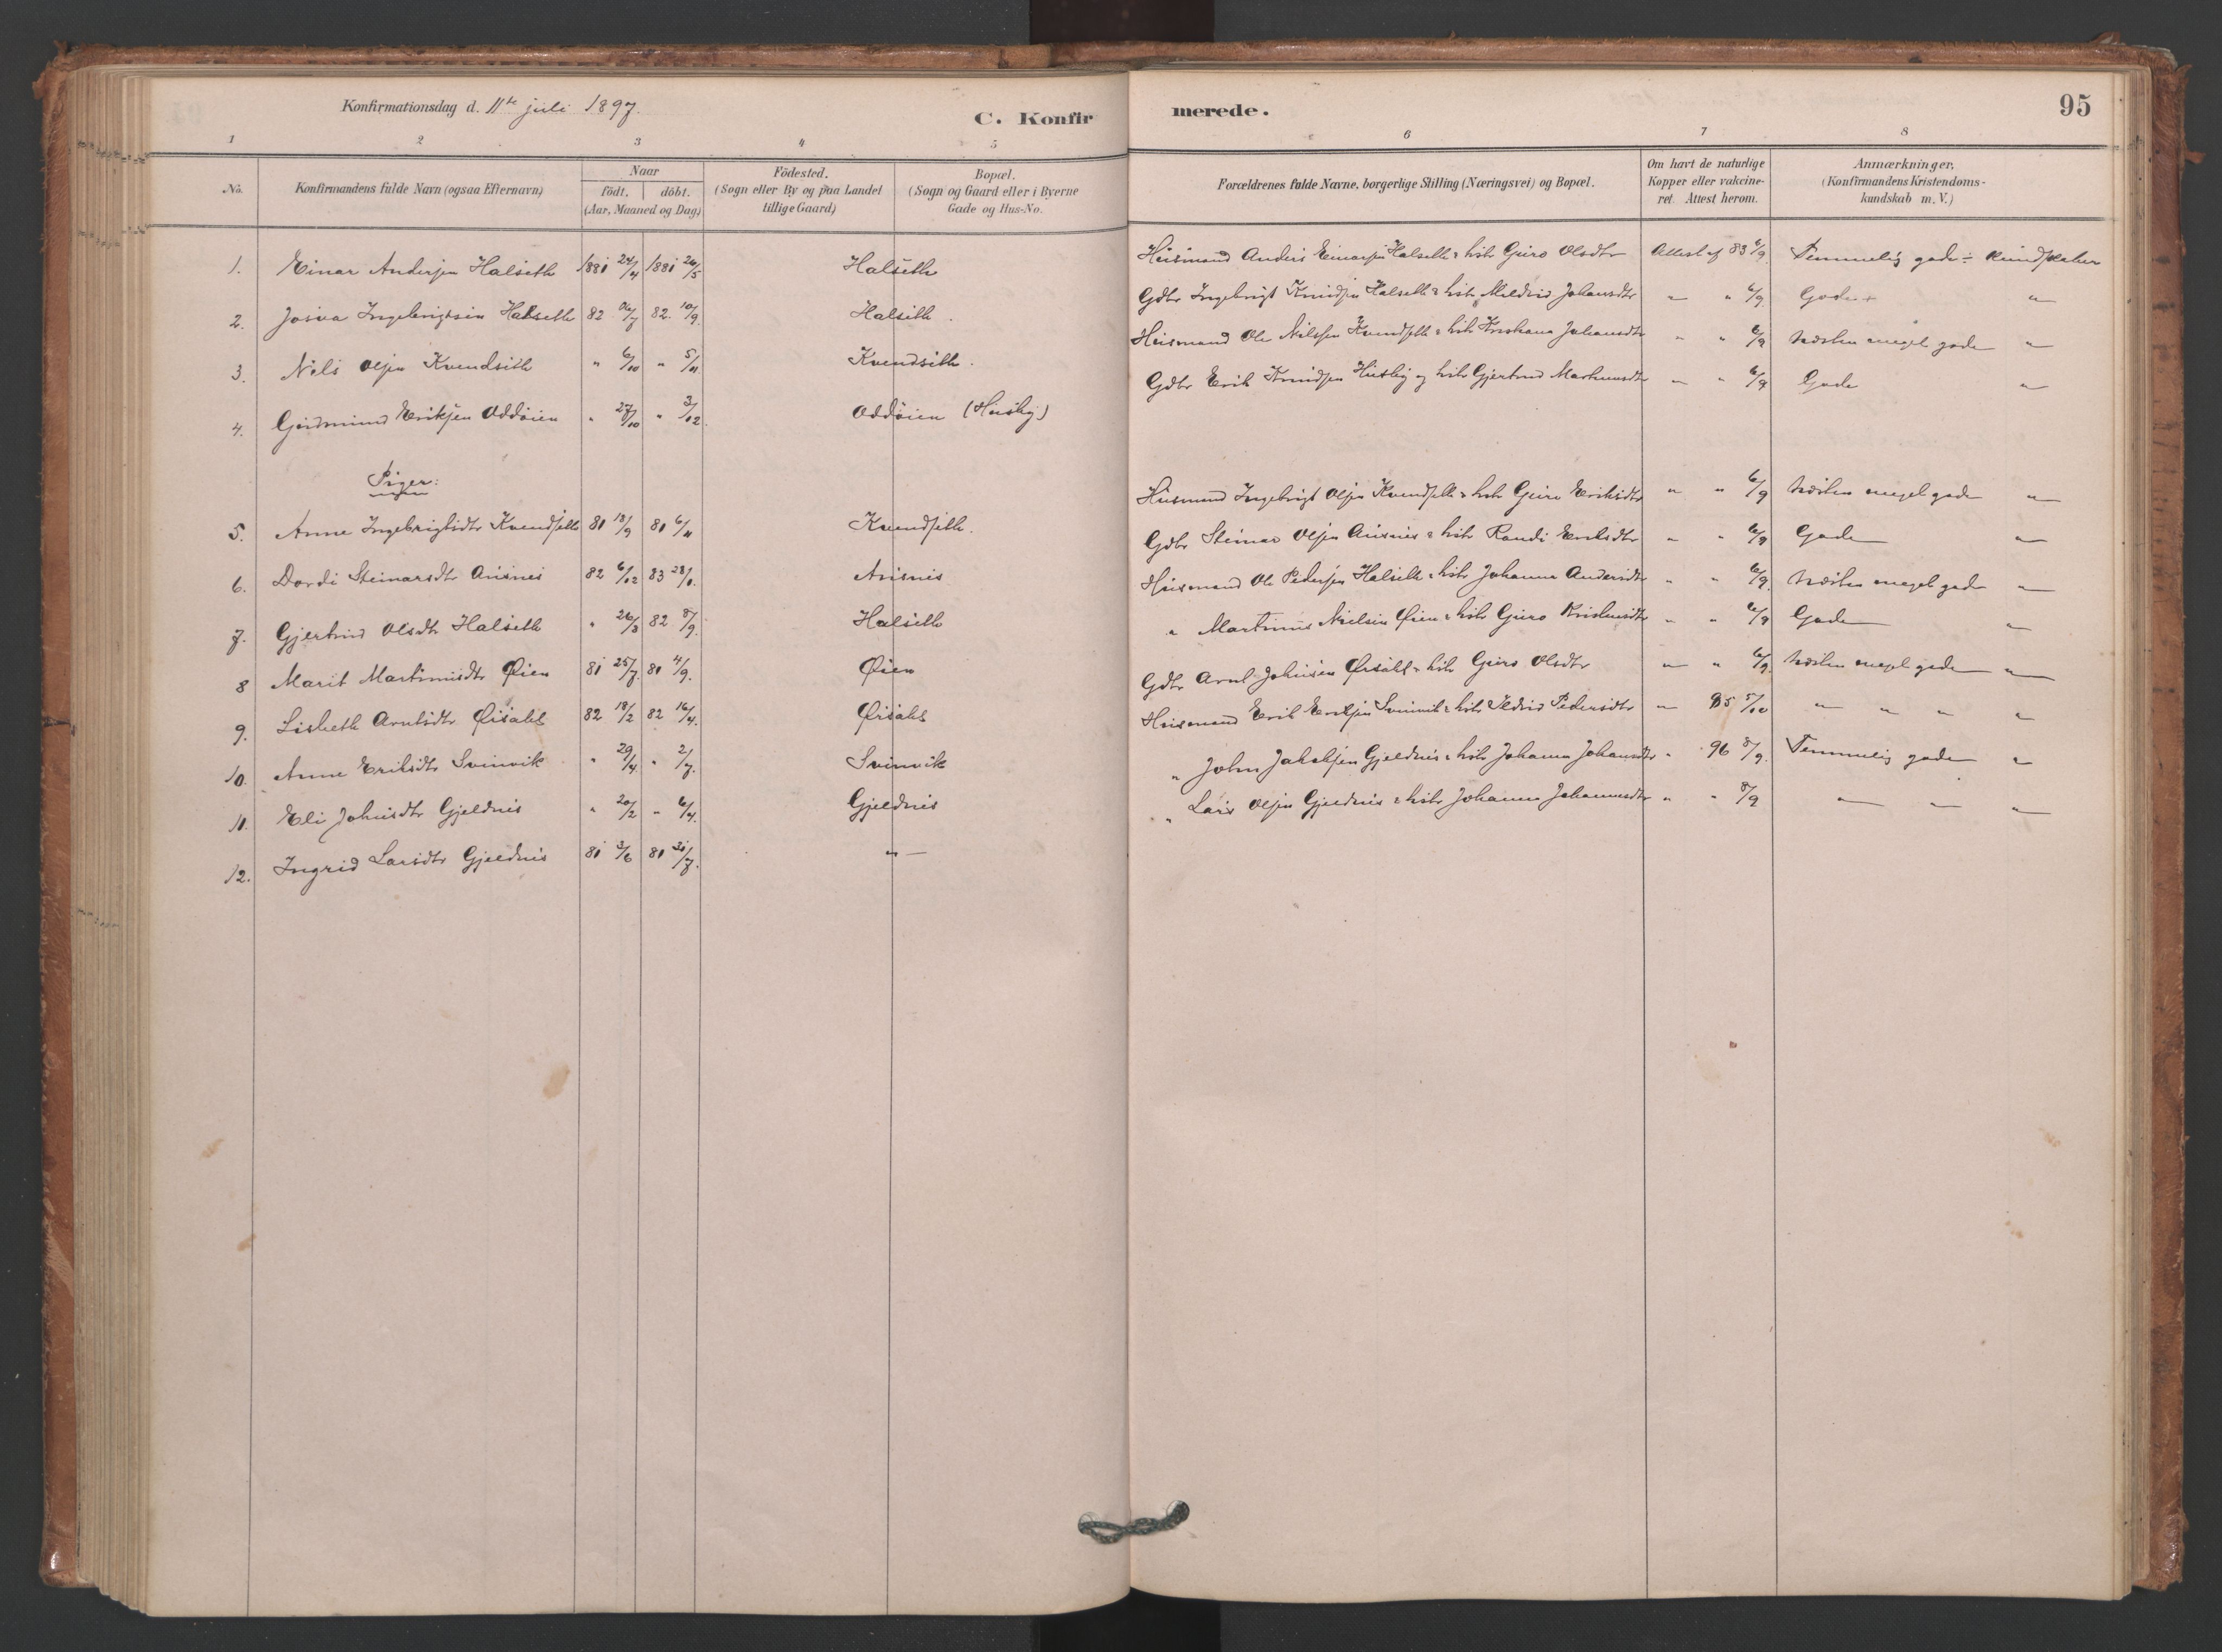 Konfirmationsdag d. 11te juli 1897.
C. Konfirmerede.
95
1 2 3 4 5 6 7 8
No.
Konfirmandens fulde Navn (ogsaa Efternavn)
Naar
födt. döbt.
(Aar, Maaned og Dag)
Födested.
(Sogn eller By og paa Landet
tillige Gaard)
Bopæl.
(Sogn og Gaard eller i Byerne
Gade og Hus-No.
Forældrenes fulde Navne, borgerlige Stilling (Næringsvei) og Bopæl.
Om havt de naturlige
Kopper eller vakcine-
ret. Attest herom.
Anmærkninger,
(Konfirmandens Kristendoms-
kundskab m. V.)
1. Einar Andersen Halseth 1881 24/4 1881 26/5 Halseth Husmand Anders Einarsen Halseth & hstr Guro Olsdtr Attest af 83 6/9 Temmelig gode ÷ kundskaber
2. Josva Ingebrigtsen Halseth 82 /7 82. 10/9. Halseth. Gdbr Ingebrigt Knudsen Halseth & hstr Meldrid Johansdtr " " 6/9. Gode + "
3. Nils Olsen Kvendseth " 6/10 " 5/11 Kvendseth. Husmand Ole Nilssen Kvendseth & hstr Johansdtr " " 6/9 Næsten meget gode "
4. Gudmund Eriksen Oddøien " 27/10 " 3/12. Oddøien (Husby) Gdbr Erik Knudsen Husby og hstr Gjertrud " " 6/9 Gode "
Piger:
5. Anne Ingebrigtsdtr Kvendseth 81 18/9 81 6/11 Kvendseth. Husmand Ingebrigt Olsen Kvendseth & hstr Guro Eriksdtr " " 6/9 Næsten meget gode "
6. Dordi Steinarsdtr Ausnes 82 6/12 83 28/1. Ausnes Gdbr Steinar Olsen Ausnes & hstr Randi Eriksdtr " " 6/9 Gode "
7. Gjertrud Olsdtr Halseth " 26/3 82 8/9. Halseth Husmand Ole Pedersen Halseth & hstr Johanna Andersdtr " " 6/9. Næsten meget gode "
8 Marit Martinusdtr Øien 81 25/7. 81 4/9. Øien " Martinus Nielsen Øien & hstr Guro " " 6/9 Gode "
9. Lisbeth Arntsdtr Ørsahl 82 18/2 82 16/4. Ørsahl Gdbr Arnt Johnsen Ørsahl & hstr Guro Olsdtr " " 6/9. Næsten meget gode "
10. Anne Eriksdtr Svinvik " 29/4. " 2/7. Svinvik Husmand Erik Eriksen Svinvik & hstr Ildrid Pedersdtr " 85 5/10 " " " "
11. Eli Johnsdtr Gjeldnes " 20/2 " 6/4. Gjeldnes " John Jakobsen Gjeldnes & hstr Johanna Johansdtr " 96 8/9. Temmelig gode "
12. Ingrid Larsdtr Gjeldnes 81 3/6 81 31/7. " — " Lars Olsen Gjeldnes & hstr Johanna Johannesdtr " " 8/9 " " "